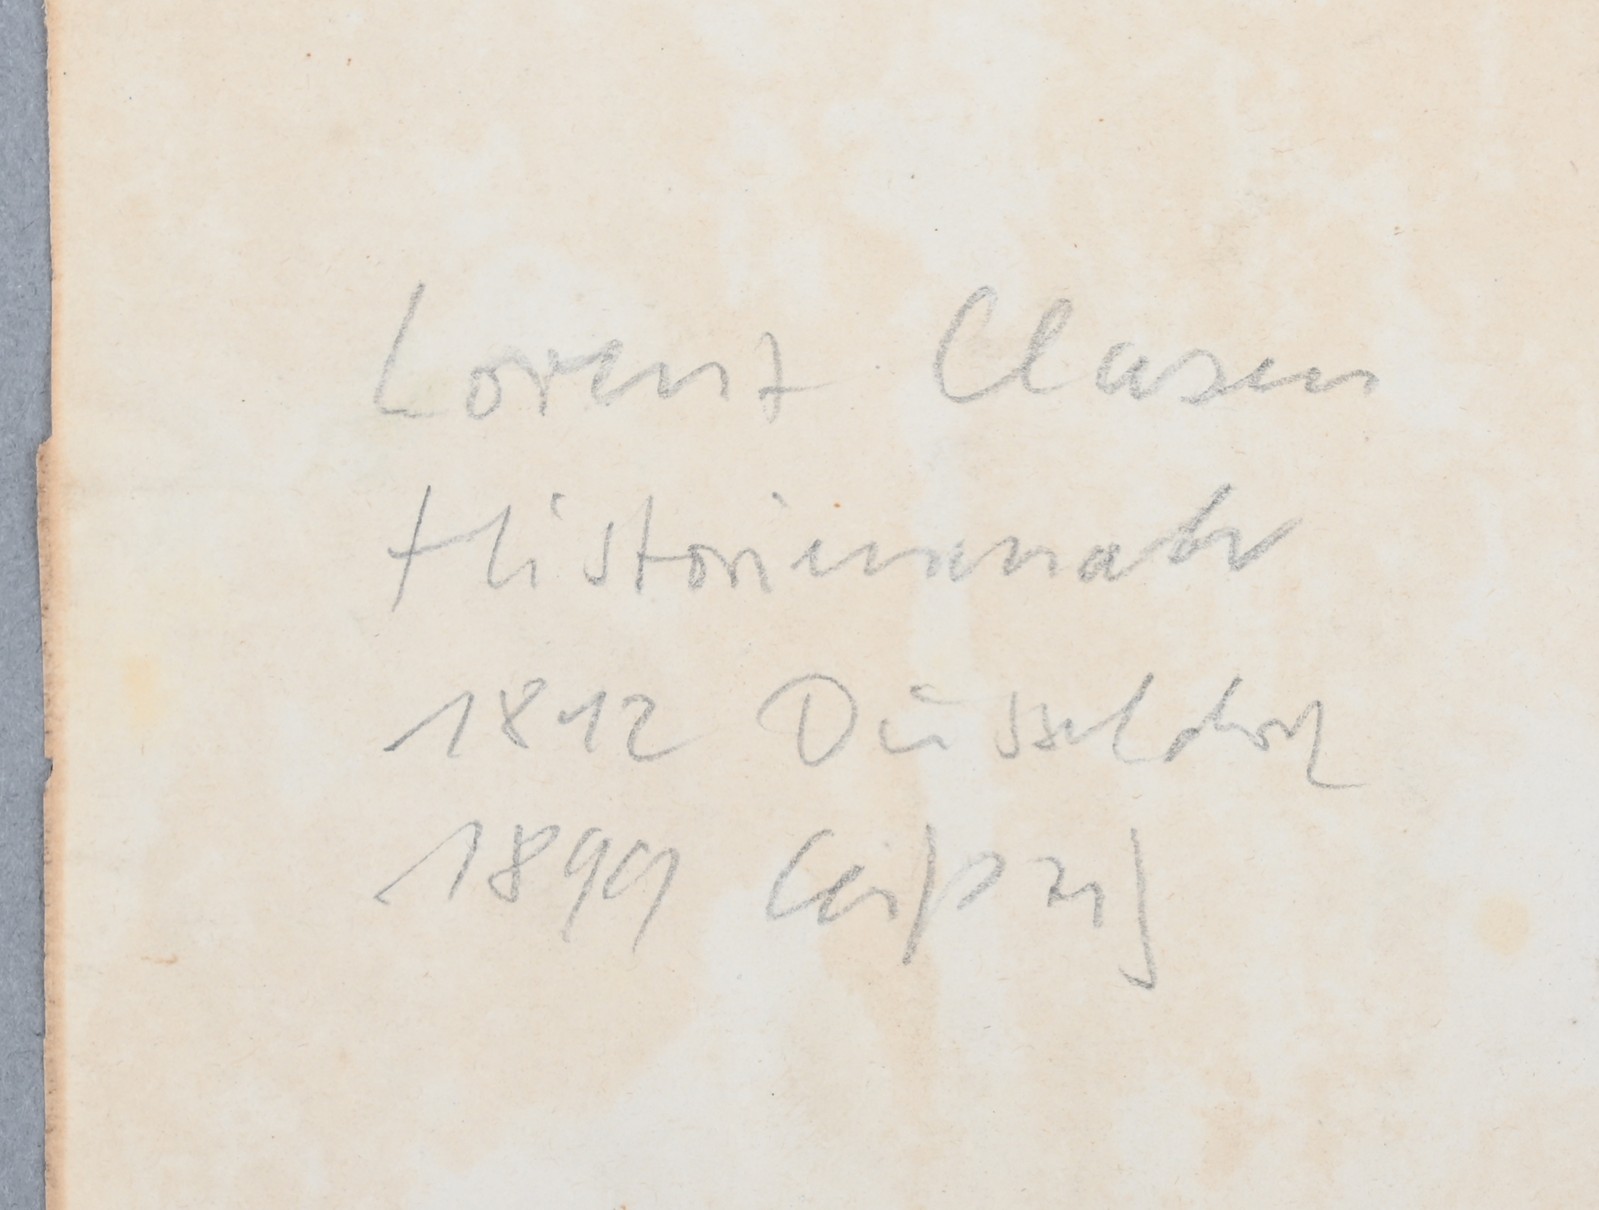 Lorenz Clasen
Historienmaler
1812 Düsseldorf
1899 Leipzig